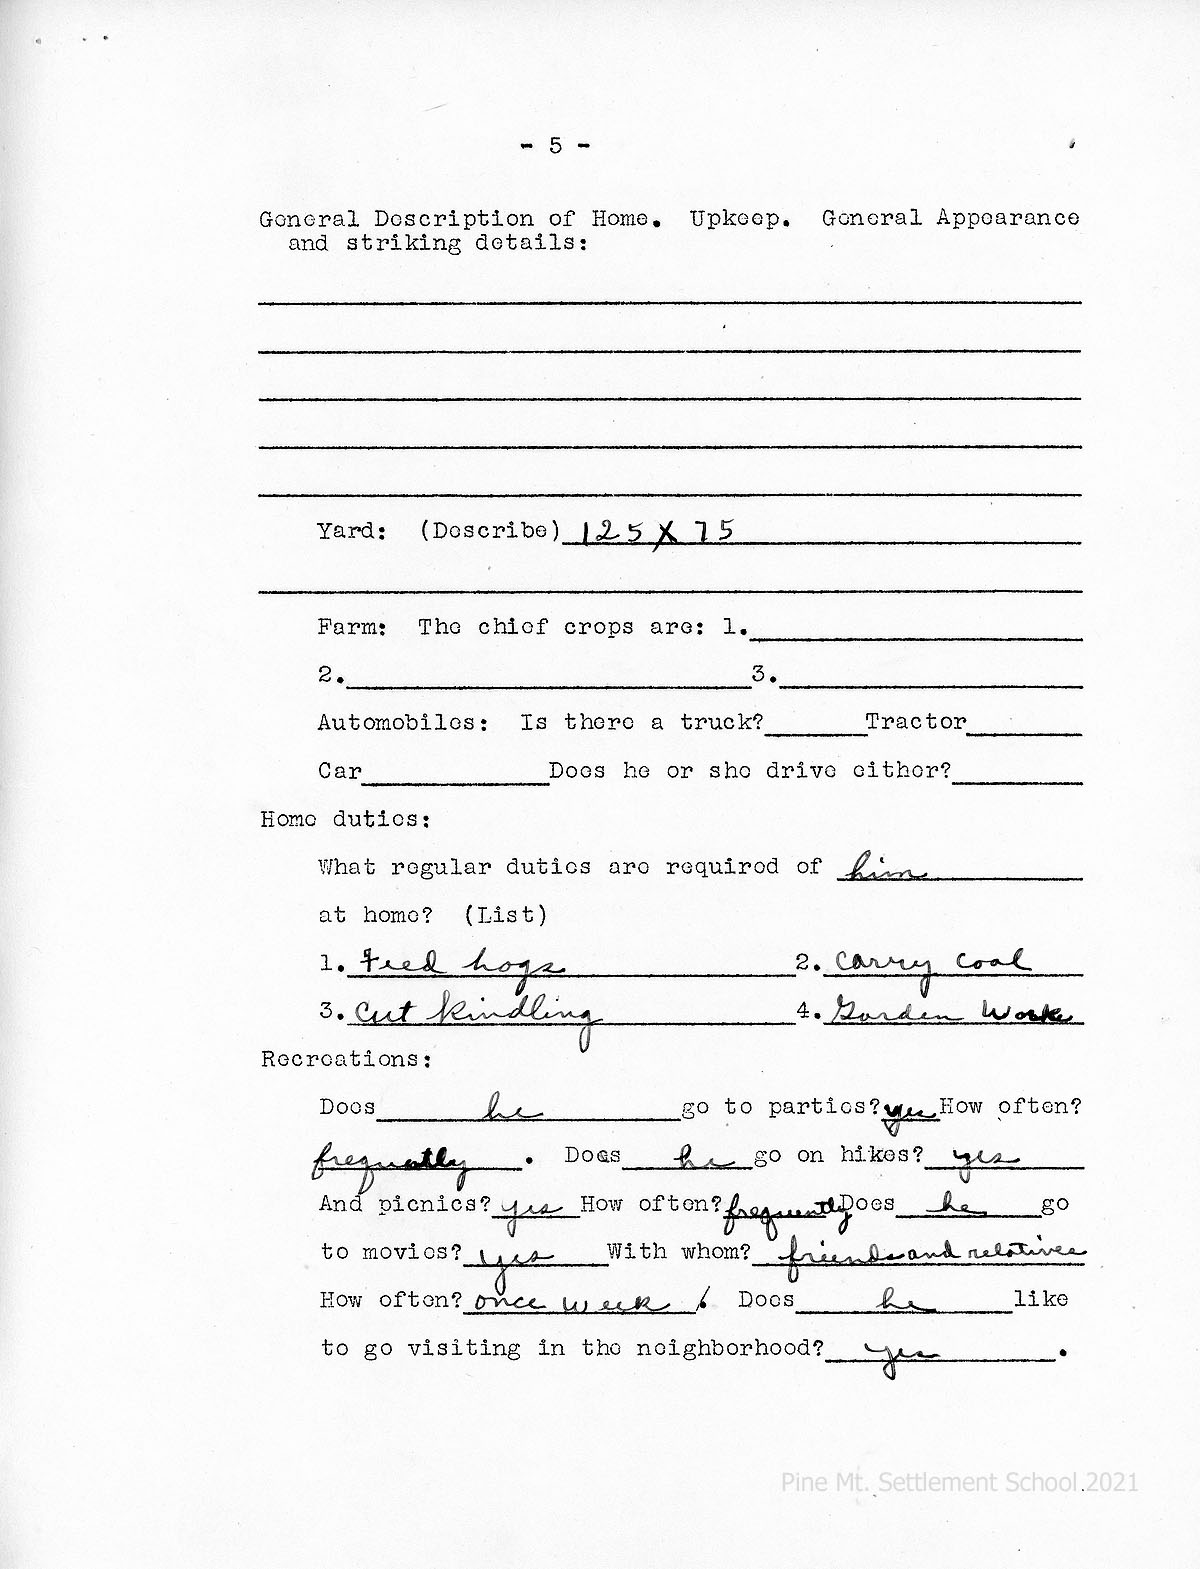 - 5 -
General Description of Home. Upkeep. General Appearance
and striking details:
Yard: (Describe) 125 X 75
Farm: The chief crops are: 1.
2. 3.
Automobiles: Is there a truck? Tractor
Car Does he or she drive either?
Home duties:
What regular duties are required of him
at home? (List)
1. Feed hogs 2. Carry coal
3. Cut kindling 4. Garden Work
Recreations:
Does he go to parties? yes How often?
frequently . Does he go on hikes? yes
And picnics? yes How often? frequently Does he go
to movies? yes With whom? friends and relatives
How often? once week . Does he like
to go visiting in the neighborhood? yes .
Pine Mt. Settlement School 2021